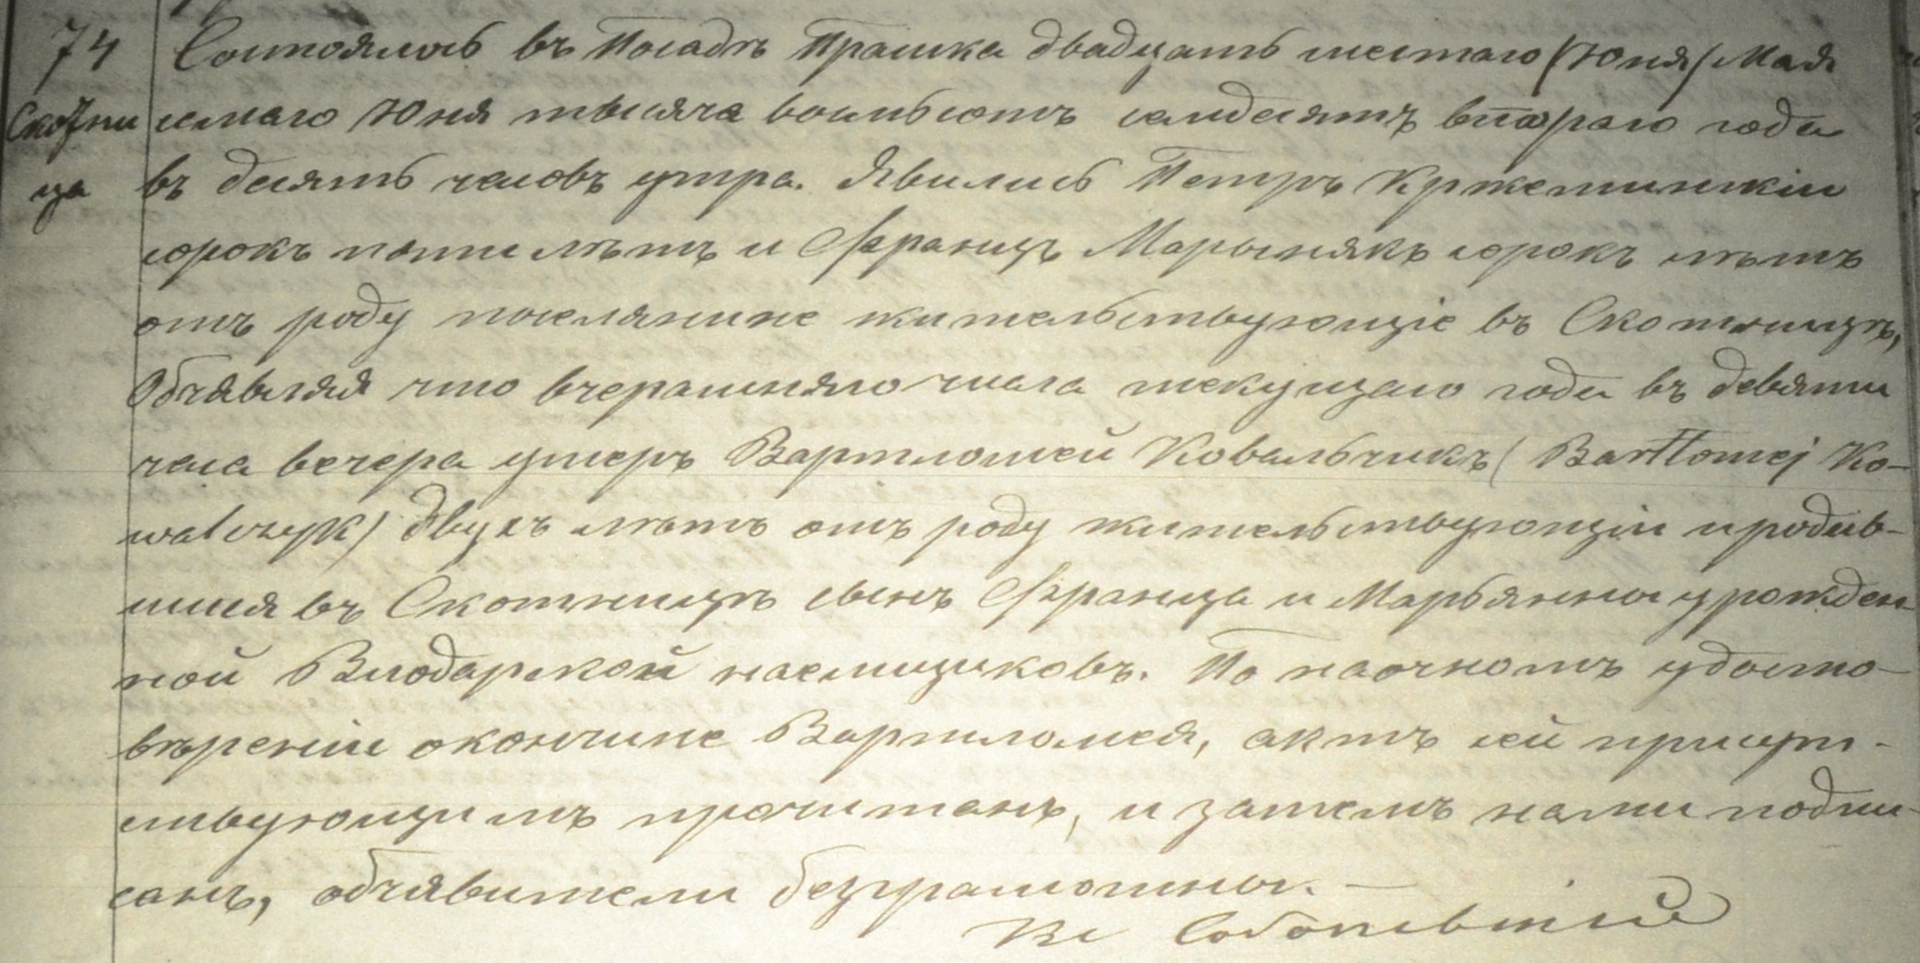 74
Скотни
ца
Состоялось въ Посадѣ Прашка двадцать шестаго (Юня) Мая
семаго Юня тысяча восемьсотъ семдесятъ втораго года
въ десять часовъ утра. Явились Петръ Кржетинскіи
сорокъ пяти лѣтъ и Францъ Марынякъ сорокъ лѣтъ
отъ роду поселянине жительствующіе въ Скотницѣ,
Объявляя что вчерашняго числа текущаго года въ девяти
часа вечера умеръ Вартломей Ковальчикъ (Bartłomej Ko-
walczyk) двухъ лѣтъ отъ роду жительствующіи и родив-
шися въ Скотницѣ сынъ Франца и Марьянны урожден-
ной Влодарской наемщиковъ. По наочномъ удосто-
вѣреніи окончине Вартломея, актъ сей присут-
ствующимъ прочитанъ, и затемъ нами подпи-
санъ, объявители безграмотны. —
Кс